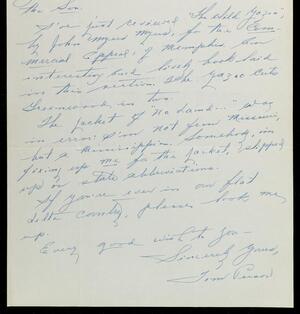 The Son.
I've just reviewed The Wild Yazoo,
by John Myers Myers, for the Com-
mercial Appeal, of Memphis. An
interesting book, book laid
in this section. The Yazoo cuts
Greenwood in two.
The jacket of "No damn..." was
in error: I'm not from Missouri,
but a Mississippian. Somebody, in
fixing up me for the jacket, slipped
up on state abbreviations.
If you're ever in our flat
delta country, please look me
up.
Every good wish to you—
Sincerely yours,
Tom Person